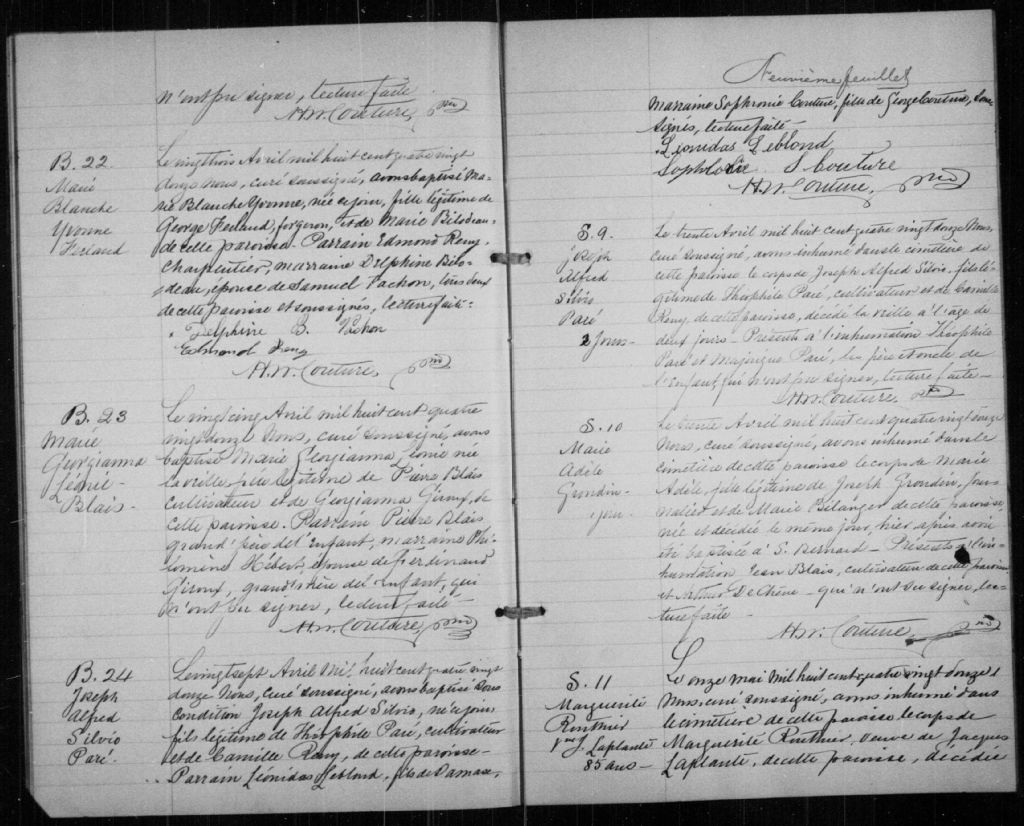 n'ont pu signer, lecture faite
H.W. Couture, ptre
B. 22
Marie
Blanche
Yvonne
Feriaud
Le vingt trois Avril mil huit cent quatre vingt
douze Nous, curé soussigné, avons baptisé Ma-
rie Blanche Yvonne, née ce jour, fille légitime de
George Feriaud, forgeron, et de Marie Bilodeau
de cette paroisse. Parrain Edmond Remy,
charpentier, marraine Delphine Bilo-
deau, épouse de Samuel Vachon, tous deux
de cette paroisse et soussignés, lecture faite.
Delphine B. Vachon
Edmond Remy
H.W. Couture, ptre
B. 23
Marie
Georgianna
Léonie
Blais.
Le vingt cinq Avril mil huit cent quatre
vingt douze Nous, curé soussigné, avons
baptisé Marie Georgianna Léonie née
la veille fille légitime de Pierre Blais
cultivateur et de Georgianna Giroux, de
cette paroisse. Parrain Pierre Blais
grand'père de l'Enfant, marraine Phi-
lomène Hébert, épouse de Ferdinand
Giroux, grand'mère de l'Enfant, qui
n'ont su signer, lecture faite
H.W. Couture, ptre
B. 24
Joseph
Alfred
Silvio
Paré.
Le vingt sept Avril mil huit cent quatre vingt
douze Nous, curé soussigné, avons baptisé sous
condition Joseph Alfred Silvio, né ce jour
fils légitime de Théophile Paré, cultivateur
et de Camille Remy, de cette paroisse—
Parrain Léonidas Leblond, fils de Damase,
Neuvième feuillet
Marraine Sophronie Couture, fille de George Couture, sous-
signés, lecture faite
Léonidas Leblond
Couture
H.W. Couture, ptre
S. 9.
Joseph
Alfred
Silvio
Paré
2 Jours
Le trente Avril mil huit cent quatre vingt douze Nous,
curé soussigné, avons inhumé dans le cimetière de
cette paroisse le corps de Joseph Alfred Silvio, fils lé-
gitime de Théophile Paré, cultivateur et de Camille
Remy, de cette paroisse, décédé la veille à l'âge de
deux jours— Présents à l'inhumation Théophile
Paré et Paré, les père et oncle de
l'enfant qui n'ont pu signer, lecture faite—
H.W. Couture, ptre
S. 10
Marie
Adèle
Grondin
1 jour
Le trente Avril mil huit cent quatre vingt douze
Nous, curé soussigné, avons inhumé dans le
cimetière de cette paroisse le corps de Marie
Adèle, fille légitime de Joseph Grondin, jour-
nalier et de Marie Bélanger de cette paroisse,
née et décédée le même jour, hier après avoir
été baptisée à S. Bernard— Présents à l'in-
humation Jean Blais, cultivateur de cette paroisse
et Arthur DeChêne— qui n'ont su signer, lec-
ture faite—
H.W. Couture, ptre
S. 11
Marguerite
Routhier
Vve J. Laplante
85 ans—
Le onze mai mil huit cent quatre vingt douze
Nous, curé soussigné, avons inhumé dans
le cimetière de cette paroisse le corps de
Marguerite Routhier, veuve de Jacques
Laplante, de cette paroisse, décédée